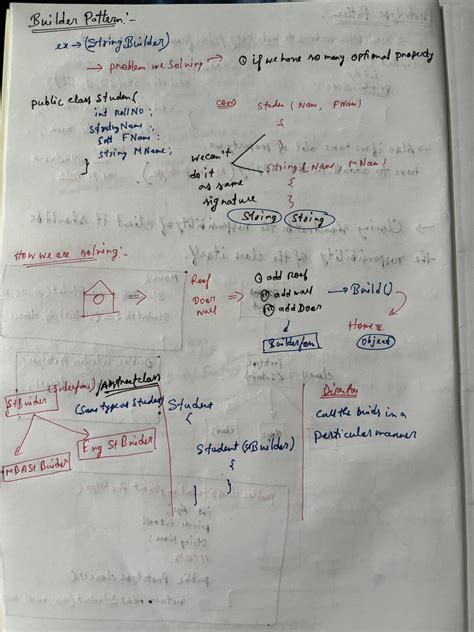 Builder Pattern:-
ex → (String Builder)
→ problem we solving → ① if we have so many optional property
public class Studen{
int RollNo;
String Name;
FName;
String MName;
}
Studen (Nam, FNam)
{
String (Name MNam)
{
}
we can't
do it
as same
signature
String String
How we are solving:-
⇒ Roof
Door
Wall
⇒ ① add Roof
② add wall
③ add Door
→ Build()
Home
Object
StBuider (interface) / Abstract class
(Same type as Student)
MBA StBuider
Eng StBuider
Student
{
Student (StBuilder)
{
}
}
Director
call the buids in a
particular manner